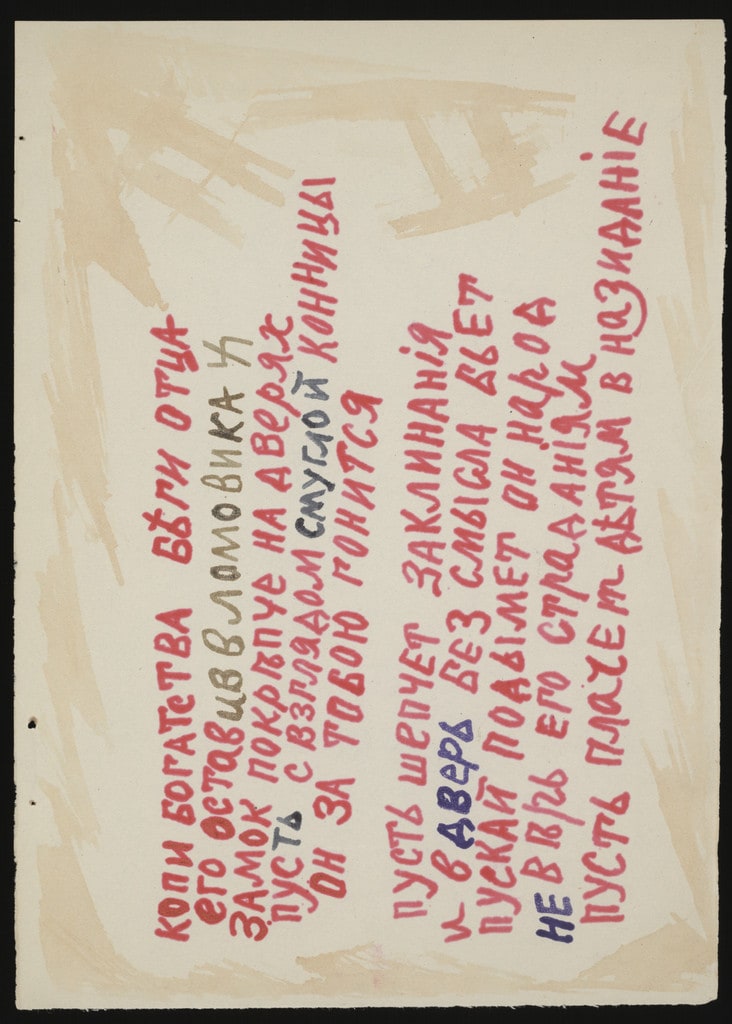 КОПИ БОГАТСТВА БѢГИ ОТЦА
ЕГО ОСТАВИВ В ЛОМОВИКАХ
ЗАМОК ПОКРѢПЧЕ НА ДВЕРЯХ
ПУСТЬ С ВЗГЛЯДОМ СМУГЛОЙ КОННИЦЫ
ОН ЗА ТОБОЮ ГОНИТСЯ
ПУСТЬ ШЕПЧЕТ ЗАКЛИНАНІЯ
И В ДВЕРЬ БЕЗ СМЫСЛА БЬЕТ
ПУСКАЙ ПОДЫМЕТ ОН НАРОД
НЕ ВѢРЬ ЕГО СТРАДАНІЯМ
ПУСТЬ ПЛАЧЕТ ДѢТЯМ В НАЗИДАНІЕ